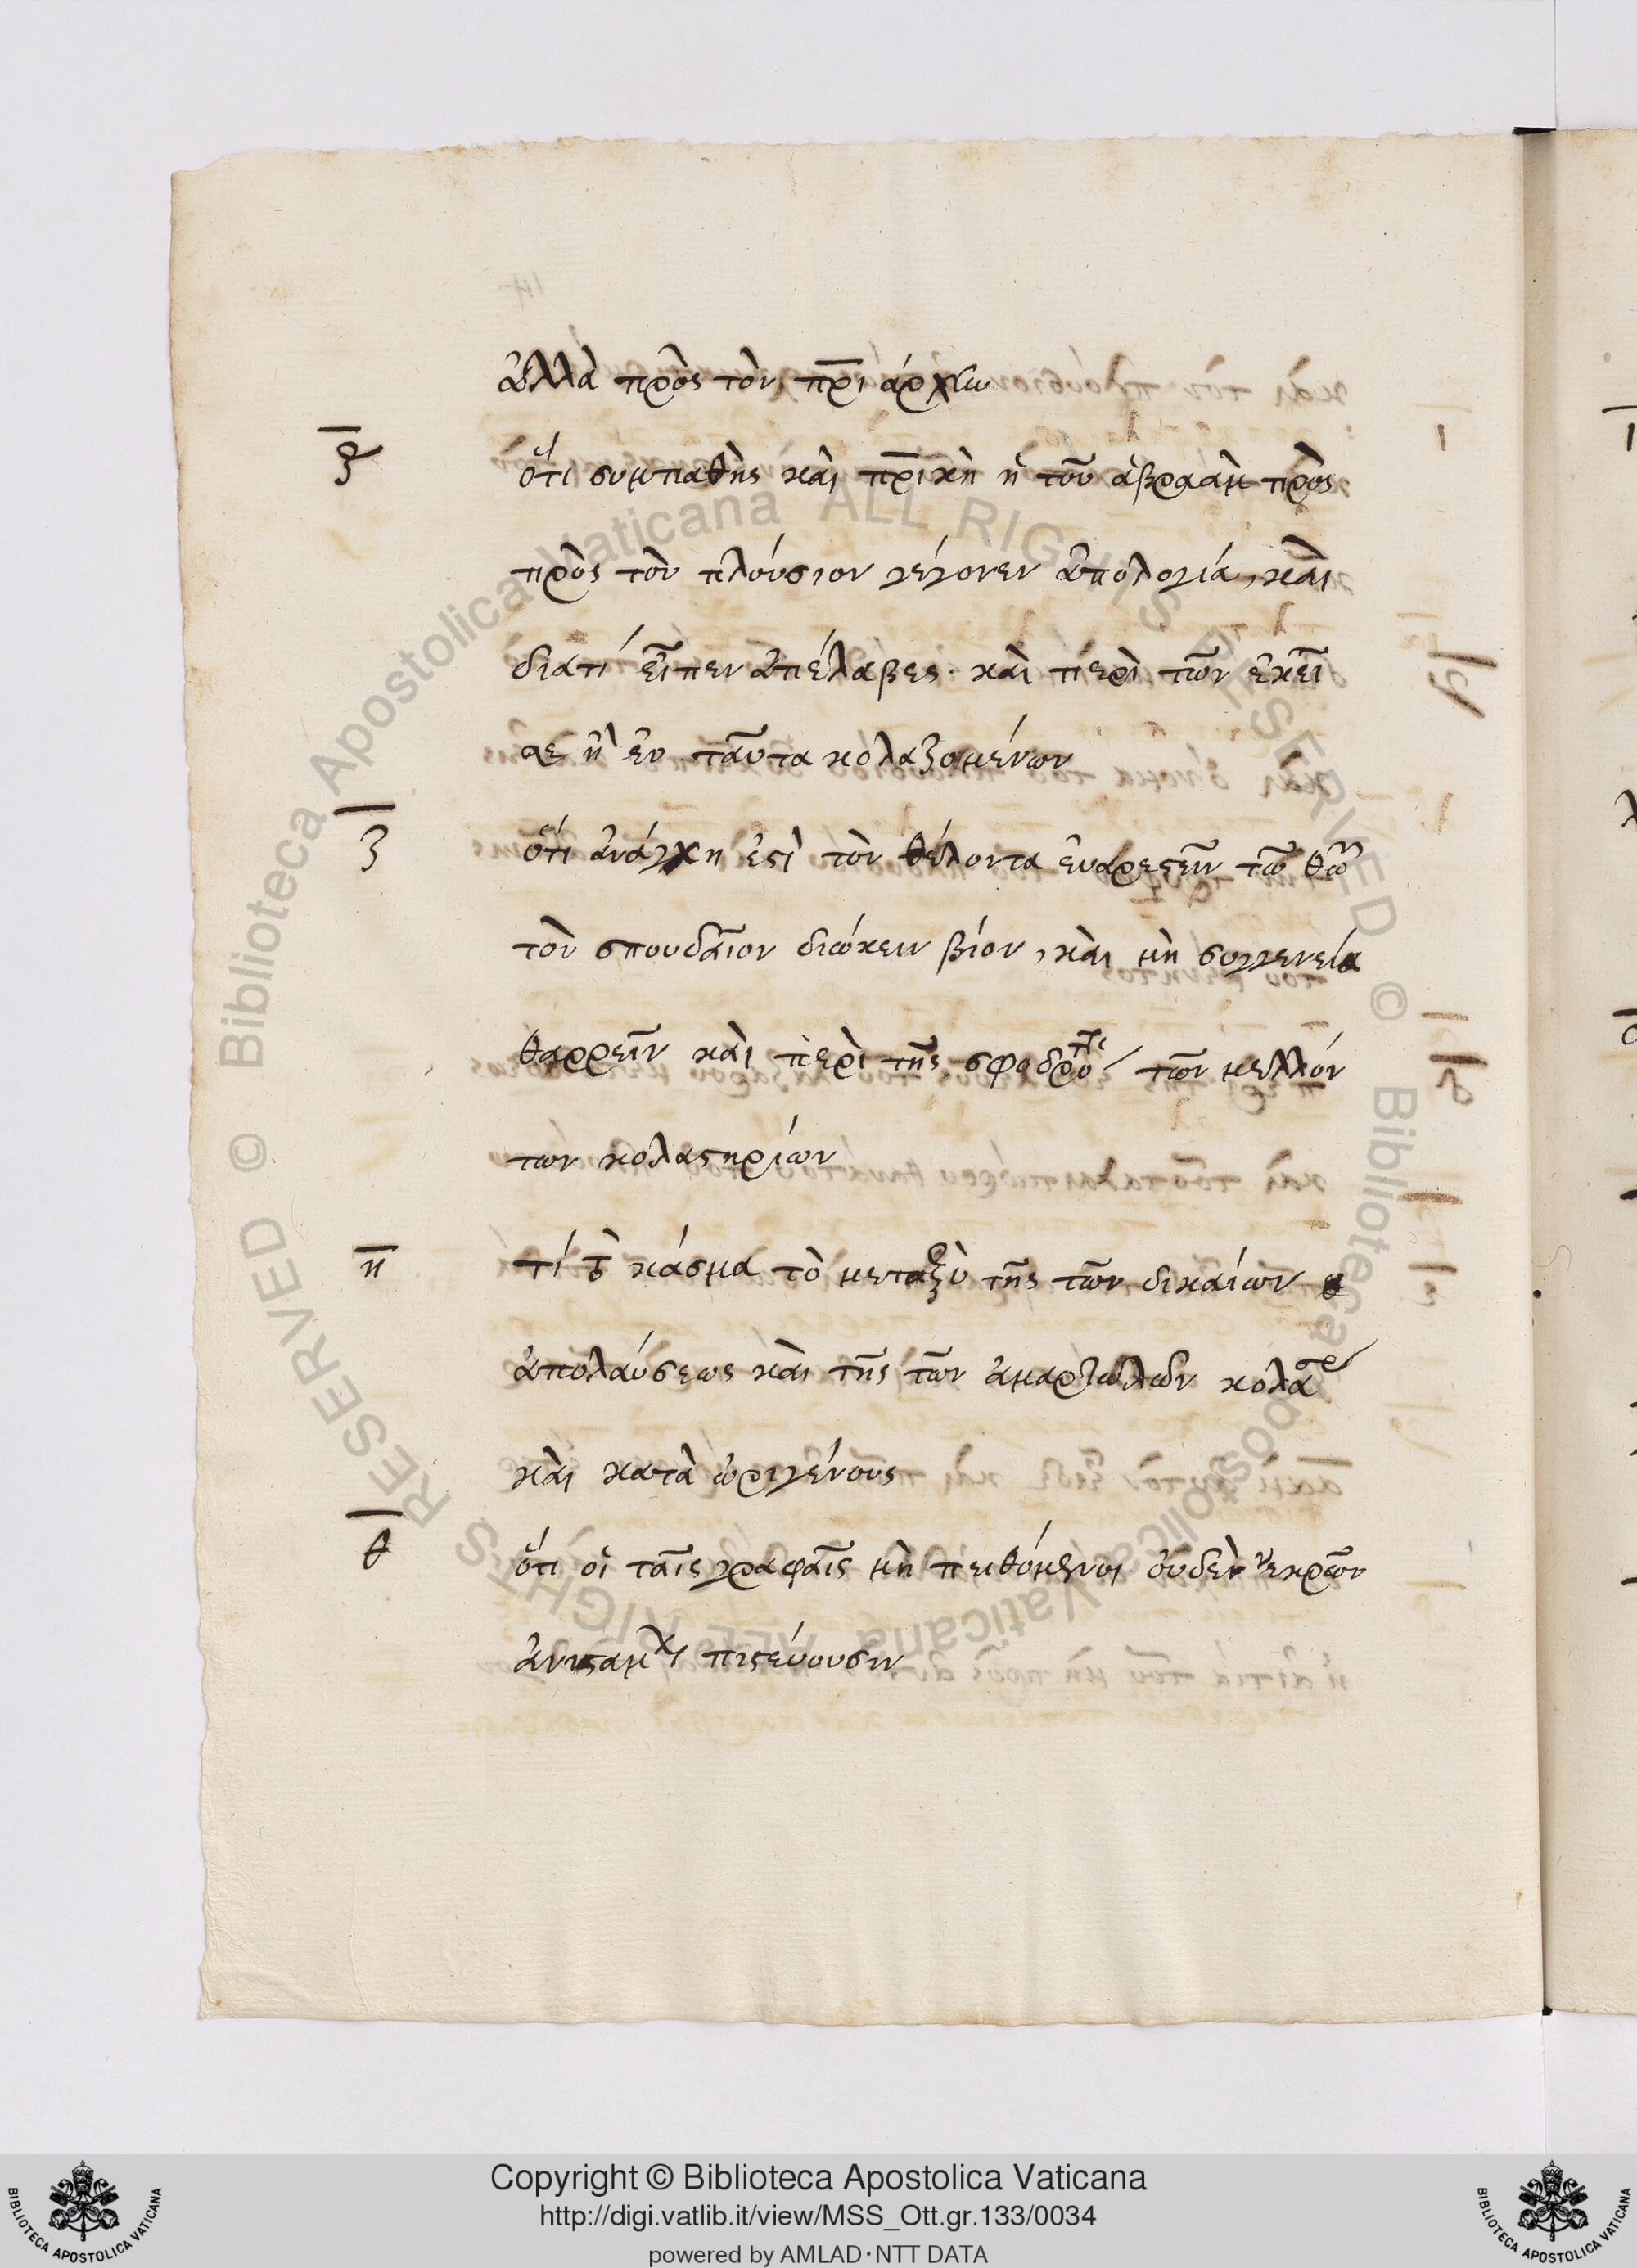 ἀλλὰ πρὸς τὸν πρ̅ιάρχην
ϛ̅ ὅτι συμπαθὴς καὶ πρ̅ικὴ ἡ τοῦ ἀβραὰμ πρὸς
πρὸς τὸν πλούσιον γέγονεν ἀπολογία, καὶ
διατί εἶπεν ἀπέλαβες· καὶ περὶ τῶν ἐκεῖ
ταῦτα κολαζομένων
ζ̅ ὅτι ἀνάγκη ἐϛὶ τὸν θέλοντα εὐαρεϛεῖν τῶ θῶ
τὸν σπουδαῖον διώκειν βίον, καὶ μὴ συγγενεία
θαρρεῖν καὶ περὶ τῆς σφοδρο τῶν μελλόν
των κολαϛηρίων
η̅ τί τὸ χάσμα τὸ μεταξὺ τῆς τῶν δικαίων
ἀπολαύσεως καὶ τῆς τῶν ἁμαρτωλῶν κολασ
καὶ κατὰ ὠριγένους
θ̅ ὅτι οἱ ταῖς γραφαῖς μὴ πειθόμενοι οὐδὲ νεκρῶν
πιϛεύουσιν
Copyright © Biblioteca Apostolica Vaticana
http://digi.vatlib.it/view/MSS_Ott.gr.133/0034
powered by AMLAD·NTT DATA
BIBLIOTECA APOSTOLICA VATICANA
BIBLIOTECA APOSTOLICA VATICANA
© Biblioteca Apostolica Vaticana ALL RIGHTS RESERVED © Biblioteca Apostolica Vaticana ALL RIGHTS RESERVED